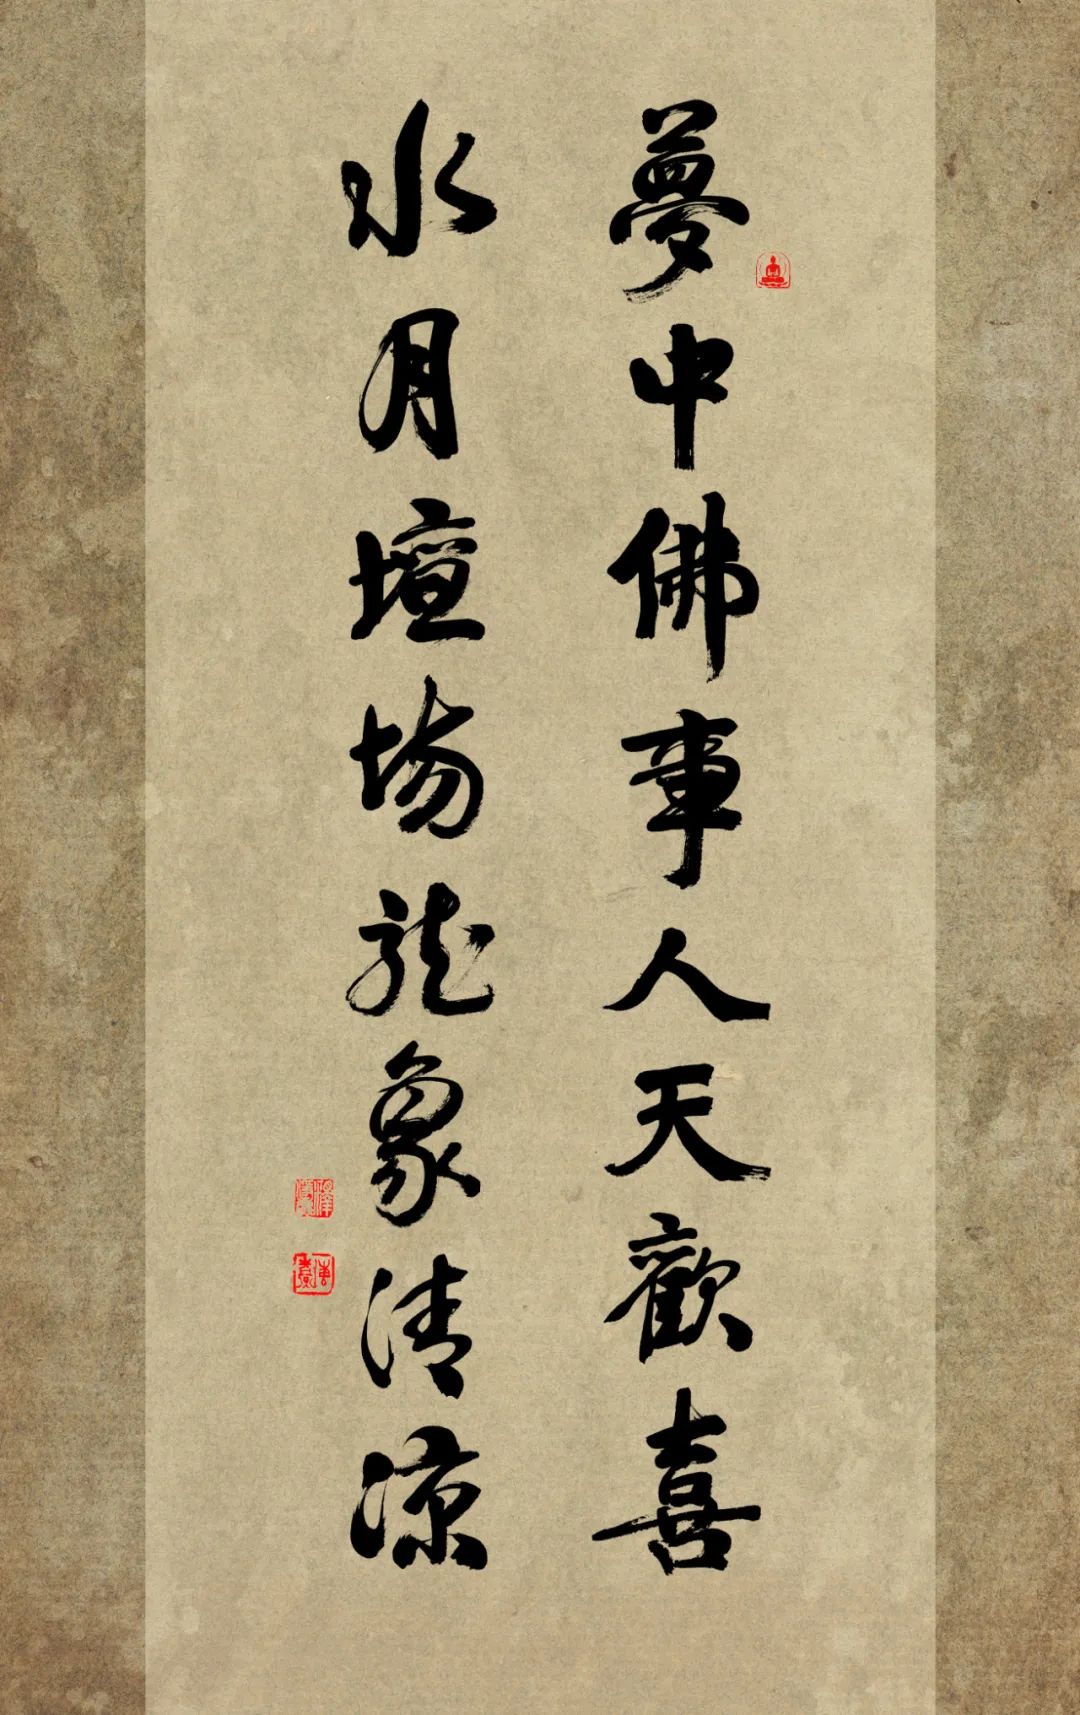 夢中佛事人天歡喜
水月壇場龍象清涼